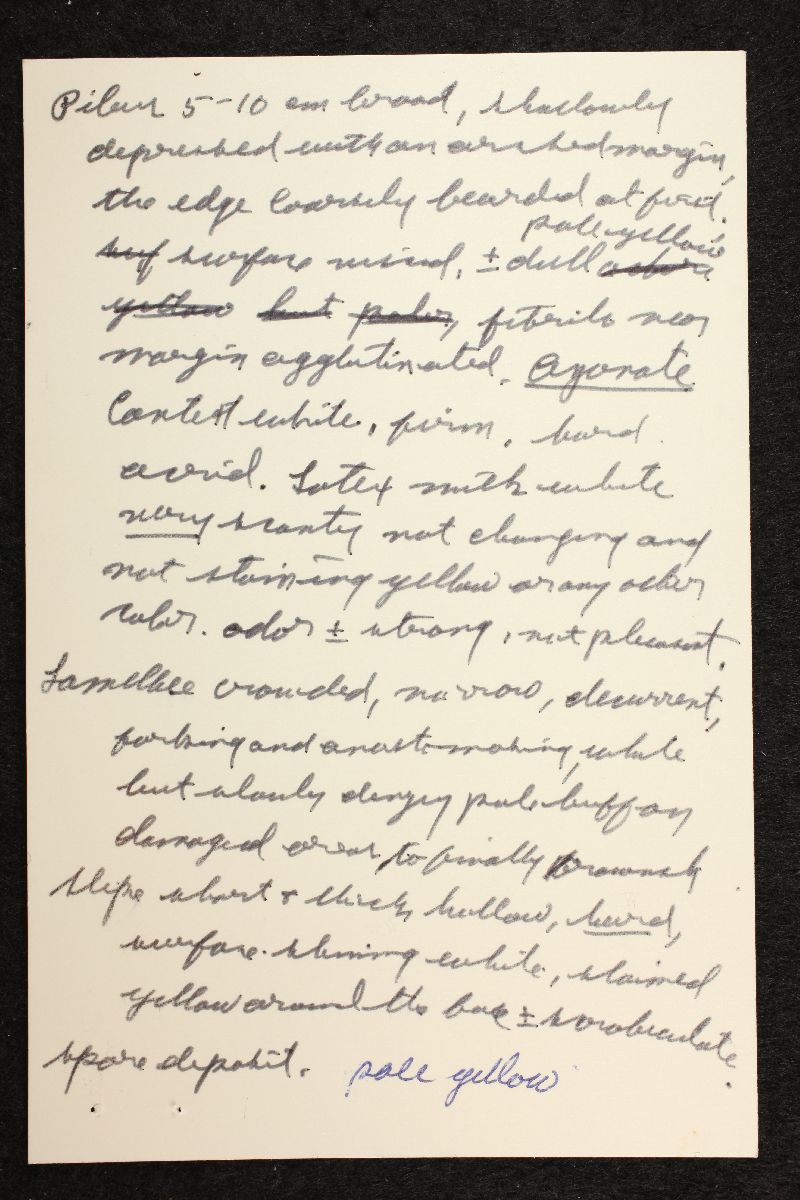 Pileus 5-10 cm broad, shallowly
depressed with an arched margin,
the edge coarsely bearded at first.
pale yellow
surf surface viscid, ± dull
yellow but paler, fibrils near
margin agglutinated. Azonate
Context white, firm, hard
acrid. Latex milk white
very scanty not changing and
not staining yellow or any other
color. odor ± strong, not pleasant.
Lamellae crowded, narrow, decurrent,
forking and anastomosing, white
but slowly dingy pale buff on
damaged areas, to finally brownish
Stipe short + thick, hollow, hard,
surface shining white, stained
yellow around the base ± scrobiculate.
spore deposit. pale yellow